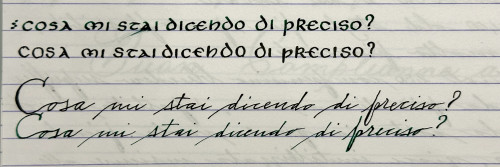 cosa mi stai dicendo di preciso?
cosa mi stai dicendo di preciso?
Cosa mi stai dicendo di preciso?
Cosa mi stai dicendo di preciso?